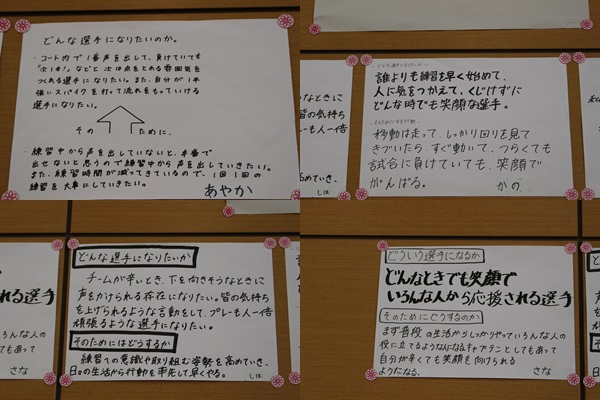 どんな選手になりたいのか。
・コート内で1番声を出して、負けていても
「次1本!」などと次は点をとれる雰囲気を
つくれる選手になりたい。また、自分が1本
強いスパイクを打って流れをもっていける
選手になりたい。
そのために、
・練習中から声を出していないと、本番で
出せないと思うので練習中から声を出していきたい。
また、練習時間が減ってきているので、1回1回の
練習を大事にしていきたい。
あやか
なときに
皆の気持
も人一倍
高めていき、
しほ
どんな選手になりたいか
誰よりも練習を早く始めて、
人に気をつかえて、くじけずに
どんな時でも笑顔な選手。
移動は走って、しっかり回りを見て
きづいたら、すぐ動いて、つらくても
試合に負けていても、笑顔で
がんばる。
かの
私
される選手
んな人の
てもあって
さな
どんな選手になりたいか
チームが辛いとき、下を向きそうなときに
声をかけられる存在になりたい。皆の気持ち
を上げられるような言動をして、プレーも人一倍
頑張るような選手になりたい。
そのためにはどうするか
練習への意識や取り組む姿勢を高めていき、
日々の生活から行動を率先して早くやる。
しほ
どういう選手になるか
どんなときでも笑顔で
いろんな人から応援される選手
そのためにどうするのか
まず普段の生活からしっかりやっていろんな人の
役に立てるような人になるキャプテンとしてもあって
自分が辛くても笑顔を向けられる
ようになる。
さな